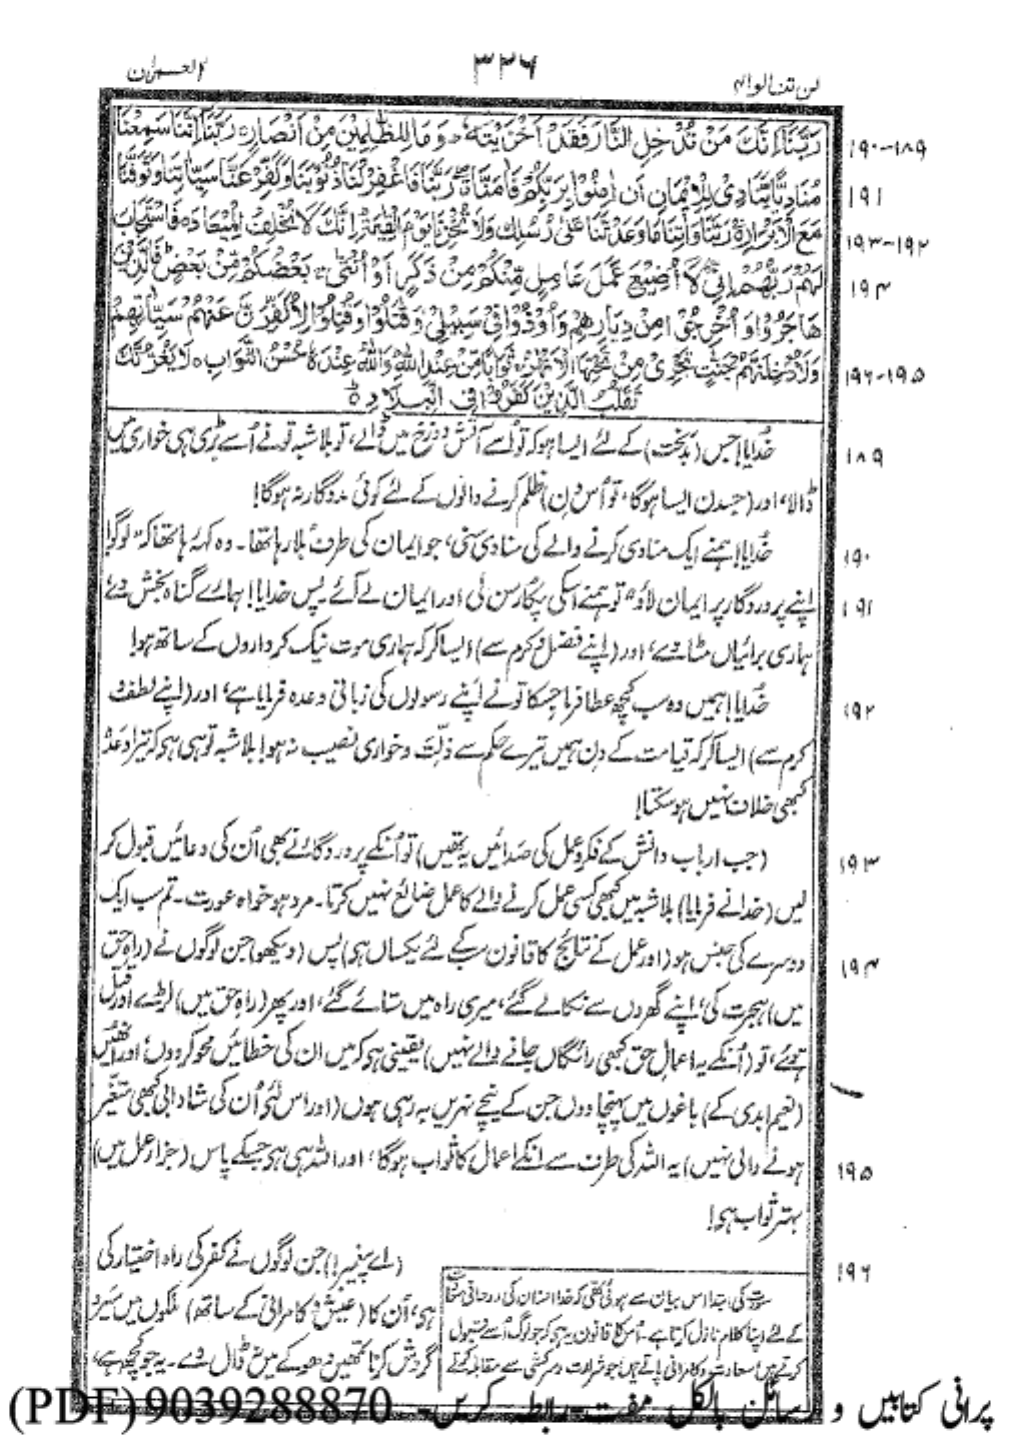 لن تنالوا ۴
۳۲۶
آل عمران ۳
رَبَّنَا إِنَّكَ مَنْ تُدْخِلِ النَّارَ فَقَدْ أَخْزَيْتَهُ ۖ وَمَا لِلظَّالِمِينَ مِنْ أَنْصَارٍ ۝ رَبَّنَا إِنَّنَا سَمِعْنَا
۱۸۹-۱۹۰
مُنَادِيًا يُّنَادِىْ لِلْإِيْمَانِ أَنْ اٰمِنُوْا بِرَبِّكُمْ فَاٰمَنَّا ۖ رَبَّنَا فَاغْفِرْ لَنَا ذُنُوْبَنَا وَكَفِّرْ عَنَّا سَيِّاٰتِنَا وَتَوَفَّنَا
۱۹۱
مَعَ الْاَبْرَارِ ۝ رَبَّنَا وَاٰتِنَا مَا وَعَدْتَّنَا عَلٰى رُسُلِكَ وَلَا تُخْزِنَا يَوْمَ الْقِيٰمَةِ ۗ اِنَّكَ لَا تُخْلِفُ الْمِيْعَادَ ۝ فَاسْتَجَابَ
۱۹۲-۱۹۳
لَهُمْ رَبُّهُمْ اَنِّىْ لَا اُضِيْعُ عَمَلَ عَامِلٍ مِّنْكُمْ مِّنْ ذَكَرٍ اَوْ اُنْثٰى ۚ بَعْضُكُمْ مِّنْ بَعْضٍ ۚ فَالَّذِيْنَ
۱۹۴
هَاجَرُوْا وَاُخْرِجُوْا مِنْ دِيَارِهِمْ وَاُوْذُوْا فِىْ سَبِيْلِىْ وَقٰتَلُوْا وَقُتِلُوْا لَاُكَفِّرَنَّ عَنْهُمْ سَيِّاٰتِهِمْ
وَلَاُدْخِلَنَّهُمْ جَنّٰتٍ تَجْرِىْ مِنْ تَحْتِهَا الْاَنْهٰرُ ۚ ثَوَابًا مِّنْ عِنْدِ اللّٰهِ ۗ وَاللّٰهُ عِنْدَهٗ حُسْنُ الثَّوَابِ ۝ لَا يَغُرَّنَّكَ
۱۹۵-۱۹۶
تَقَلُّبُ الَّذِيْنَ كَفَرُوْا فِى الْبِلَادِ ۝
خدایا! جس (بدبخت) کے لئے ایسا ہو کہ تو اُسے آتش دوزخ میں ڈالے، تو بلاشبہ تونے اُسے بڑی ہی خواری میں
۱۸۹
ڈالا، اور (جسدن ایسا ہوگا، تو اُس دن) ظلم کرنے والوں کے لئے کوئی مددگار نہ ہوگا!
خدایا! ہمنے ایک منادی کرنے والے کی منادی سُنی، جو ایمان کی طرف بُلا رہا تھا۔ وہ کہہ رہا تھا کہ "لوگو!
۱۹۰
اپنے پروردگار پر ایمان لاؤ" تو ہمنے اُسکی پکار سن لی اور ایمان لے آئے۔ پس خدایا! ہمارے گناہ بخش دے
۱۹۱
ہماری برائیاں مٹا دے، اور (اپنے فضل و کرم سے) ایسا کر کہ ہماری موت نیک کرداروں کے ساتھ ہو!
خدایا! ہمیں وہ سب کچھ عطا فرما جسکا تونے اپنے رسولوں کی زبانی وعدہ فرمایا ہے، اور (اپنے لطف و
۱۹۲
کرم سے) ایسا کر کہ قیامت کے دن ہمیں تیرے حکم سے ذلت و خواری نصیب نہ ہو! بلاشبہ تو ہی ہی کہ تیرا وعدہ
کبھی خلاف نہیں ہو سکتا!
(جب ارباب دانش کے فکر و عمل کی صدائیں یہ تھیں) تو اُنکے پروردگار نے بھی اُن کی دعائیں قبول کر
۱۹۳
لیں (خدا نے فرمایا) بلاشبہ میں کبھی کسی عمل کرنے والے کا عمل ضائع نہیں کرتا۔ مرد ہو خواہ عورت۔ تم سب ایک
دوسرے کی جنس ہو (اور عمل کے نتائج کا قانون سب کے لئے یکساں ہی) پس (دیکھو) جن لوگوں نے (راہ حق
۱۹۴
میں) ہجرت کی، اپنے گھروں سے نکالے گئے، میری راہ میں ستائے گئے، اور پھر (راہ حق میں) لڑے اور قتل
ہوئے، تو (اُنکے یہ اعمال حق کبھی رائگاں جانے والے نہیں) یقینی ہی کہ میں ان کی خطائیں محو کردوں، اور اُنھیں
(نعیم ابدی کے) باغوں میں پہنچا دوں جن کے نیچے نہریں بہ رہی ہوں (اور اس لئے اُن کی شادابی کبھی متغیر
ہونے والی نہیں) یہ اللہ کی طرف سے انکے اعمال کا ثواب ہوگا، اور اللہ ہی ہی جسکے پاس (جزاء عمل میں)
۱۹۵
بہتر ثواب ہی!
(اے پیغمبر!) جن لوگوں نے کفر کی راہ اختیار کی
۱۹۶
ہی، اُن کا (عیش و کامرانی کے ساتھ) ملکوں میں سیر و
گردش کرنا تمھیں دھوکے میں نہ ڈال دے۔ یہ جو کچھ ہے،
سورت کی ابتدا اس بیان سے ہوئی تھی کہ خدا انسان کی روحانی
کے لئے اپنا کلام نازل کرتا ہے۔ اُس کا قانون یہ ہی کہ جو لوگ اُسے قبول
کرتے ہیں، سعادت و کامرانی پاتے ہیں، جو شرارت و سرکشی سے مقابلہ کرتے
پرانی کتابیں و رسائل بالکل مفت۔ رابطہ کریں۔ 9039288870 (PDF)